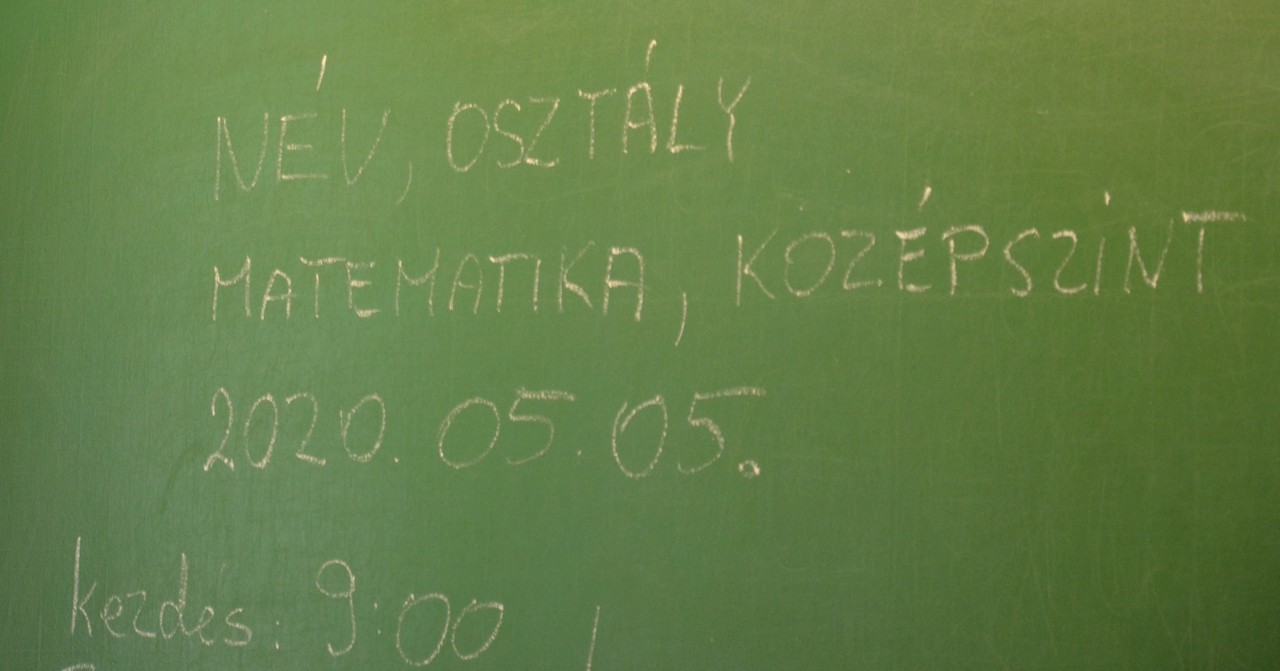 NÉV, OSZTÁLY
MATEMATIKA, KOZÉPSZINT
2020. 05. 05.
kezdes: 9:00